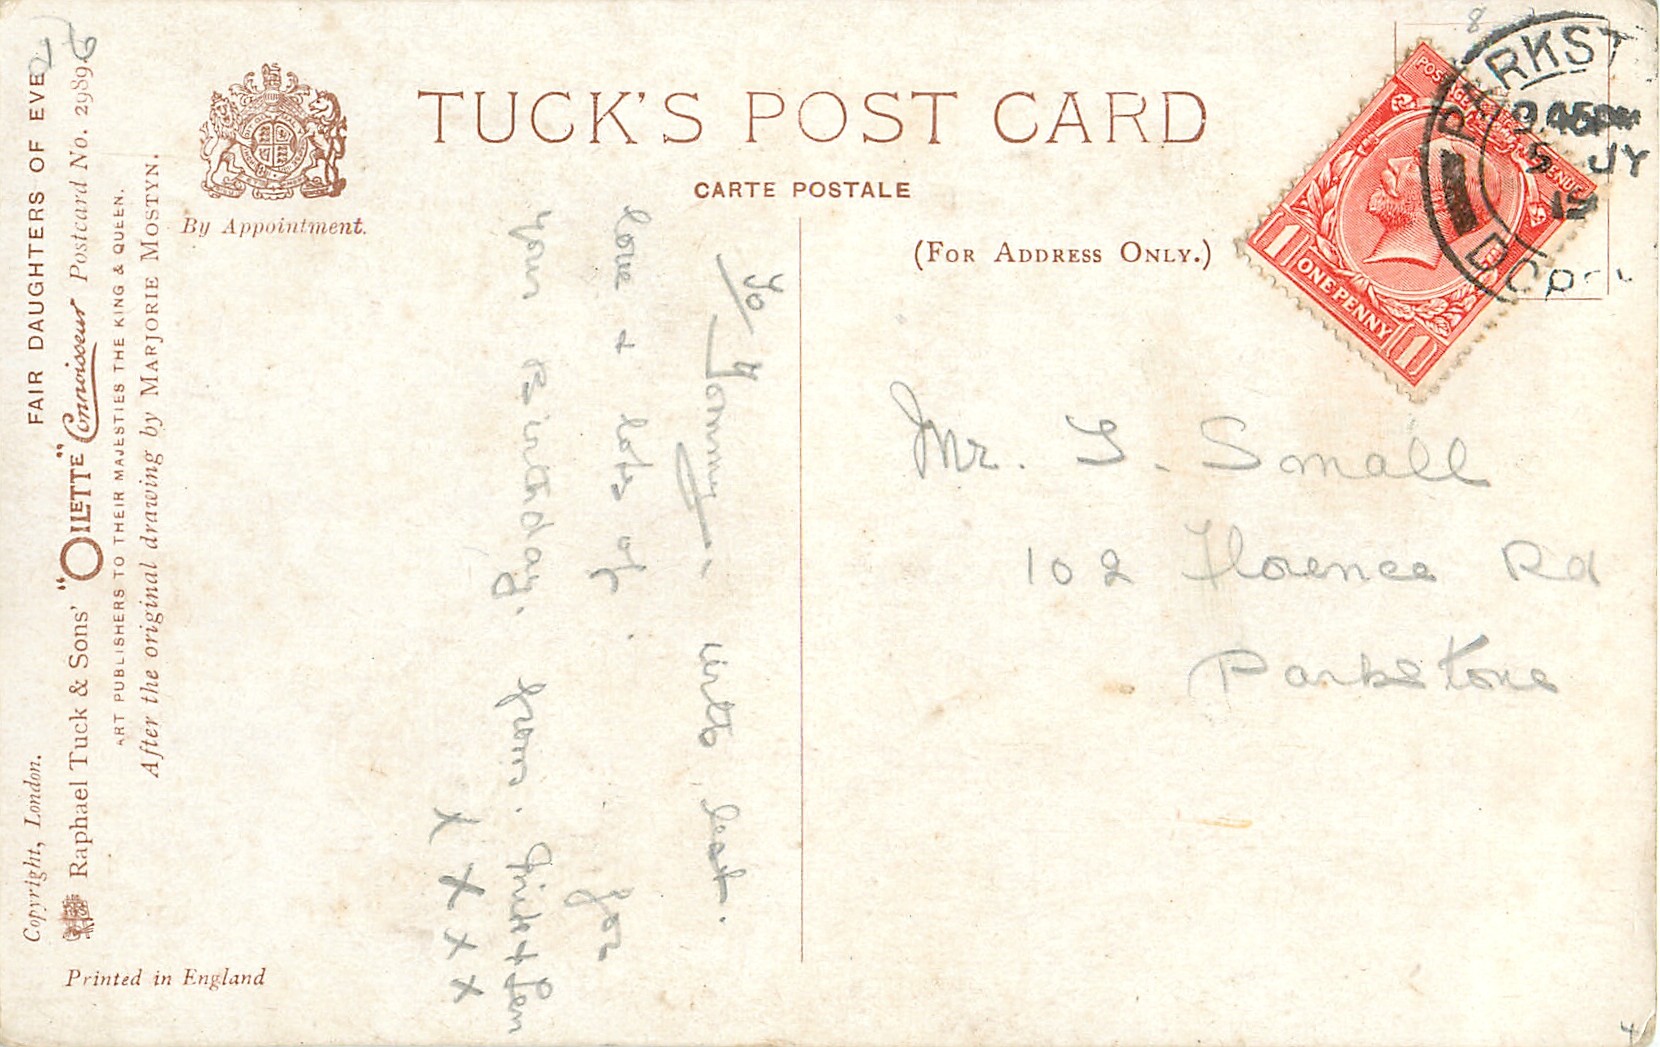 TUCK'S POST CARD
CARTE POSTALE
(FOR ADDRESS ONLY.)
By Appointment.
FAIR DAUGHTERS OF EVE
Raphael Tuck & Sons' "OILETTE" Connoisseur Postcard No. 2989
ART PUBLISHERS TO THEIR MAJESTIES THE KING & QUEEN.
After the original drawing by MARJORIE MOSTYN.
Copyright, London.
Printed in England
To Tommy - with best.
love & lots of. for
your Birthday. from.
x x x x
Mr. T. Small
102 Florence Rd
Parkstone
POSTAGE REVENUE
1 ONE PENNY 1
PARKST
9.45PM
5 JY
DORS
8